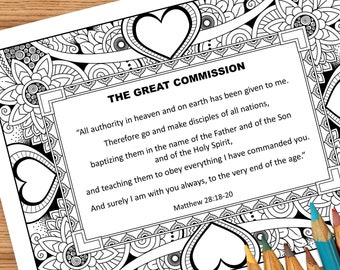 THE GREAT COMMISSION
“All authority in heaven and on earth has been given to me.
Therefore go and make disciples of all nations,
baptizing them in the name of the Father and of the Son
and of the Holy Spirit,
and teaching them to obey everything I have commanded you.
And surely I am with you always, to the very end of the age.”
Matthew 28:18-20